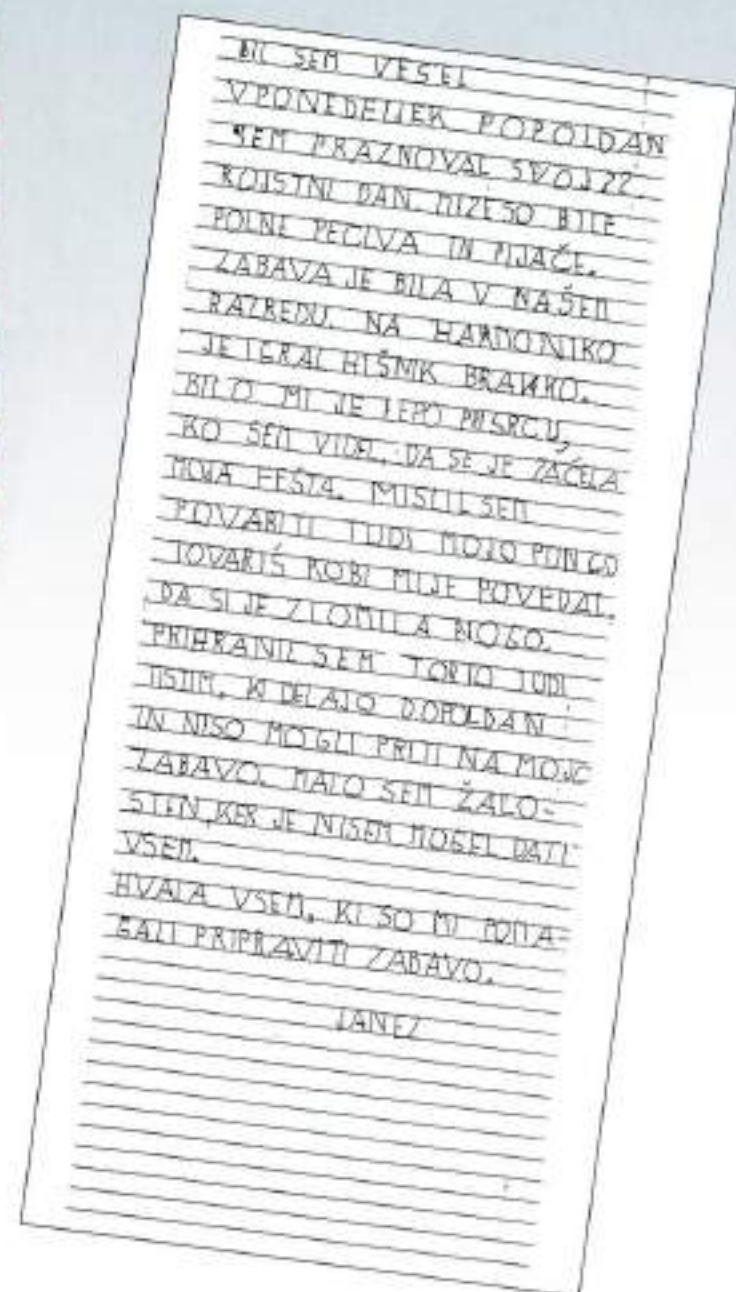 BIL SEM VESEL
V PONEDELJEK POPOLDAN
SEM PRAZNOVAL SVOJ 22.
ROJSTNI DAN. MIZE SO BILE
POLNE PECIVA IN PIJAČE.
ZABAVA JE BILA V NAŠEM
RAZREDU. NA HARMONIKO
JE IGRAL HIŠNIK BRANKO.
BILO MI JE LEPO PRI SRCU,
KO SEM VIDEL, DA SE JE ZAČELA
MOJA FEŠTA. MISLIL SEM
POVABITI TUDI MOJO
TOVARIŠ ROBI MI JE POVEDAL,
DA SI JE ZLOMILA NOGO.
PRIHRANIL SEM TORTO TUDI
TISTIM, KI DELAJO DOPOLDAN
IN NISO MOGLI PRITI NA MOJO
ZABAVO. MALO SEM ŽALO-
STEN, KER JE NISEM MOGEL DATI
VSEM.
HVALA VSEM, KI SO MI POMA-
GALI PRIPRAVITI ZABAVO.
JANEZ